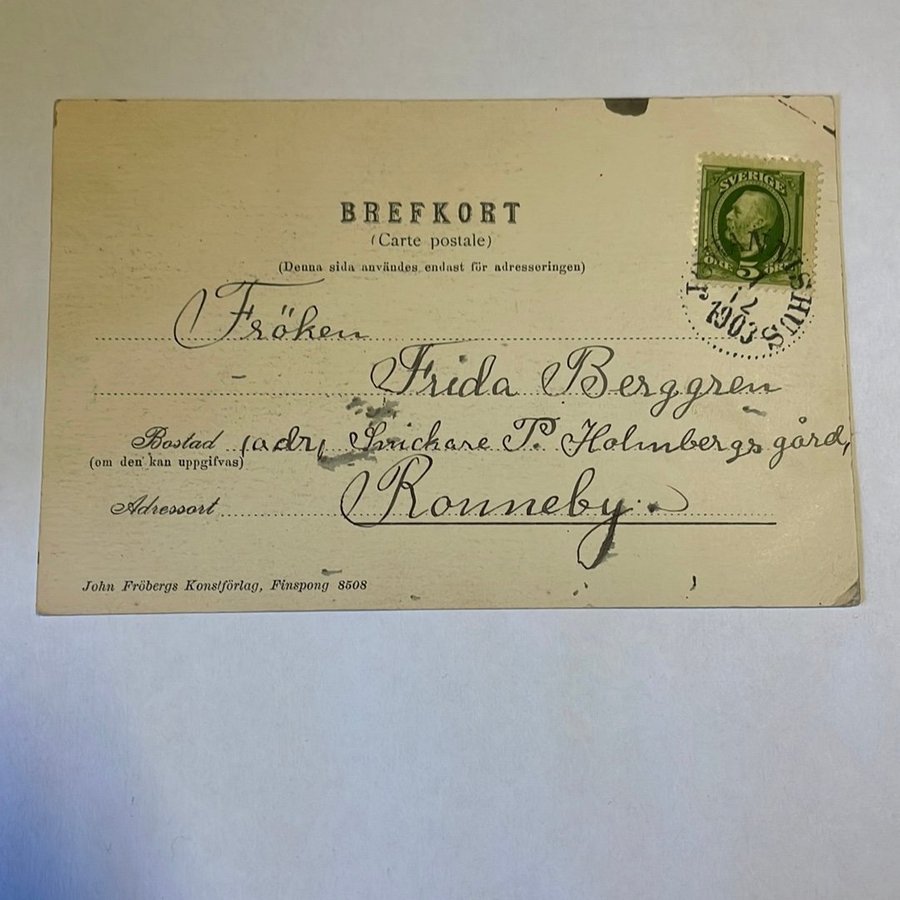 BREFKORT
(Carte postale)
(Denna sida användes endast för adresseringen)
SVERIGE
ÖRE 5 ÖRE
12
1903
Fröken
Frida Berggren
Bostad (adr, Snickare P. Holmbergs gård,
(om den kan uppgifvas)
Adressort Ronneby.
John Fröbergs Konstförlag, Finspong 8508